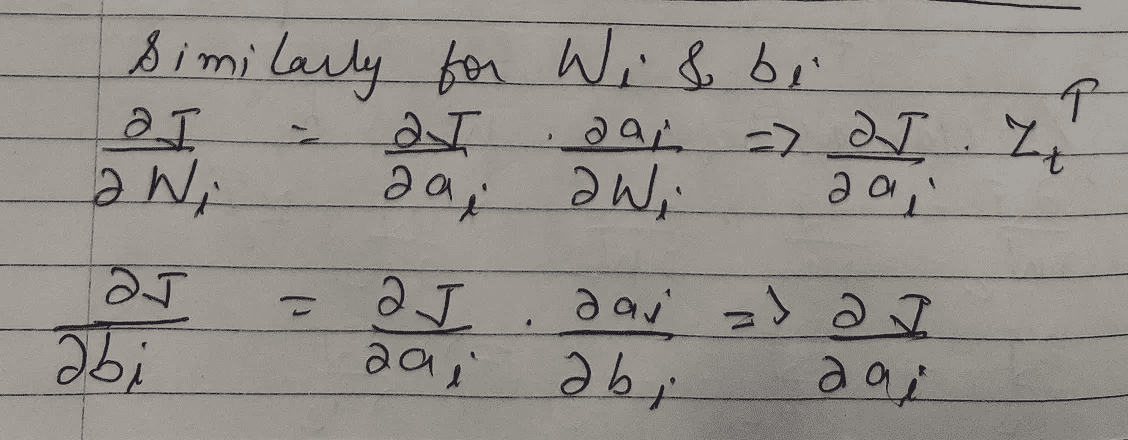 Similarly for Wi & bi
∂J/∂Wi = ∂J/∂ai · ∂ai/∂Wi => ∂J/∂ai · Zt^T
∂J/∂bi = ∂J/∂ai · ∂ai/∂bi => ∂J/∂ai